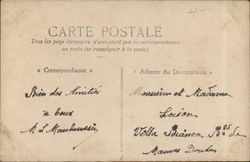 4-
CARTE POSTALE
Tous les pays étrangers n'acceptent pas la correspondance
au recto (se renseigner à la poste)
« Correspondance »
« Adresse du Destinataire »
Bien des Amitiés
à tous
A L
Monsieur et Madame
Villa Bianca Bd de